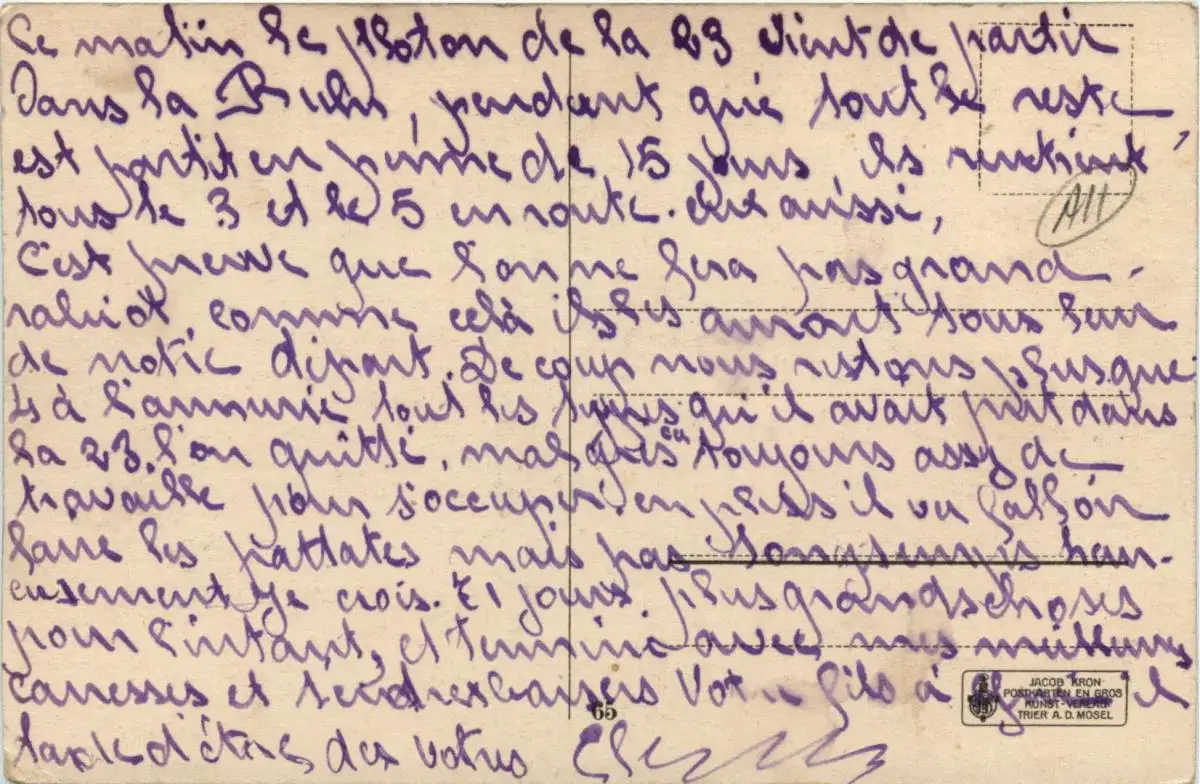 Ce matin le ploton de la 23 vient de partir
Dans la Ruhr, pendant que tout le reste
est partit en perme de 15 jours, ils rentrent
tous le 3 et le 5 en route. aussi,
C'est preuve que l'on ne fera pas grand
rabiot, comme celà ils les auront tous leur
de notre départ. De coup nous restons plus que
4 à l'armurie tout les types qu'il avait prit dans
la 23, l'on quitté, malgrès eu toujours assez de
travaille pour s'occuper. en pluss il va falloir
faire les pattates mais pas longtemps heu-
eusement je crois. 21 jours. plus grands choses
pour l'intant, et termine avec mes meilleures
carresses et tendres baisers Votre fils à qui il
tarde d'être des votres
AH
65
JACOB KRON
POSTKARTEN EN GROS
KUNST-VERLAG
TRIER A. D. MOSEL